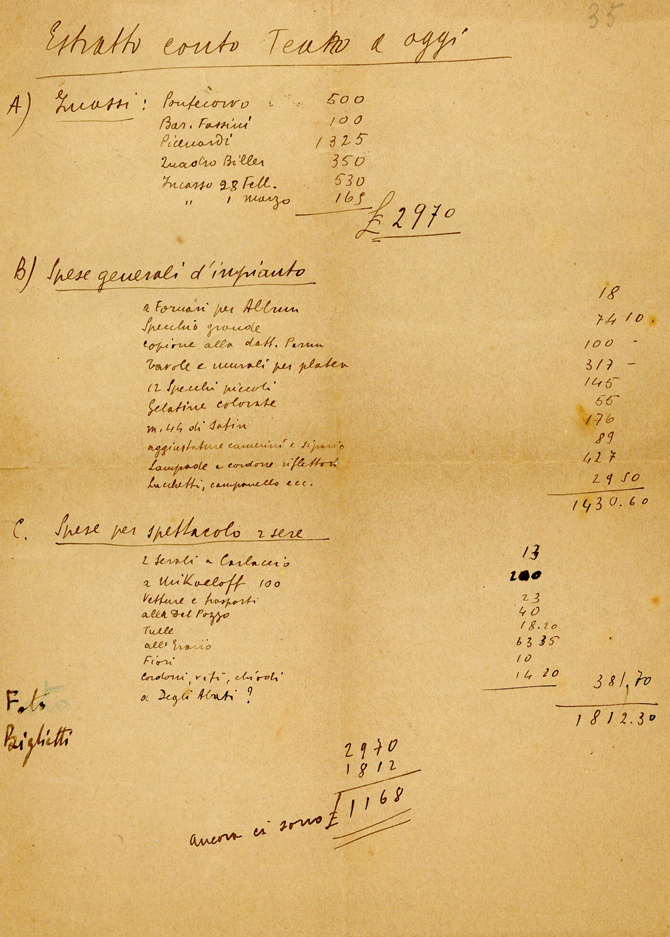 35
Estratto conto Teatro a oggi
A) Incassi: Pontecorvo 500
Bar. Fassini 100
Picenardi 1325
Quadro Biller 350
Incasso 28 Febb. 530
" 1 marzo 165
£ 2970
B) Spese generali d'impianto
a Fornari per Album 18
Specchio grande 74 10.
copione alla datt. Perna 100 -
Tavole e murali per platea 317 -
12 Specchi piccoli 145
Gelatine colorate 55
m. 44 di Satin 176
aggiustature camerini e sipario 89
Lampade e cordone riflettori 427
Lucchetti, campanello ecc. 29 50
1430.60
C. Spese per spettacolo 2 sere
2 Serali a Carlaccio 13
a Mikaeloff 100 200
Vetture e trasporti 23
alla Del Pozzo 40
Tulle 18.20
all' Erario 63 35
Fiori 10
Cordoni, viti, chiodi 14 20 381,70
a Degli Abati ?
Foto
Biglietti
1812.30
2970
1812
ancora ci sono £ 1168